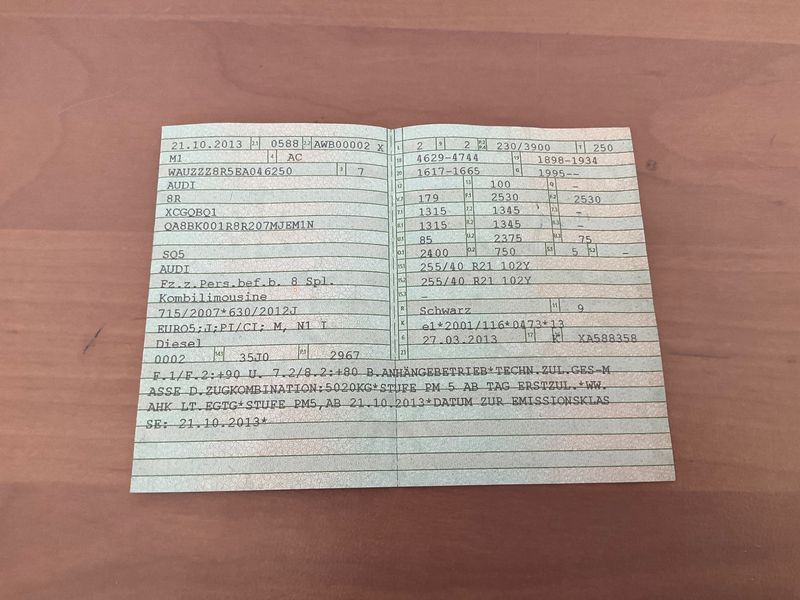 21.10.2013 2.1 0588 2.2 AWB00002 X
M1 4 AC
WAUZZZ8R5EA046250 3 7
AUDI
8R
XCGQBQ1
QA8BK001R8R207MJEM1N
SQ5
AUDI
Fz.z.Pers.bef.b. 8 Spl.
Kombilimousine
715/2007*630/2012J
EURO5;J;PI/CI; M, N1 I
Diesel
0002 14.1 35J0 P.1 2967
L 2 9 2 P.2 P.4 230/3900 T 250
18 4629-4744 19 1898-1934
20 1617-1665 G 1995--
12 - 13 100 Q -
V.7 179 F.1 2530 F.2 2530
7.1 1315 7.2 1345 7.3 -
8.1 1315 8.2 1345 8.3 -
U.1 85 U.2 2375 U.3 75
O.1 2400 O.2 750 S.1 5 S.2 -
15.1 255/40 R21 102Y
15.2 255/40 R21 102Y
15.3 -
R Schwarz 11 9
K e1*2001/116*0473*13
6 27.03.2013 17 K 16 XA588358
21
F.1/F.2:+90 U. 7.2/8.2:+80 B.ANHÄNGEBETRIEB*TECHN.ZUL.GES-M
ASSE D.ZUGKOMBINATION:5020KG*STUFE PM 5 AB TAG ERSTZUL.*WW.
AHK LT.EGTG*STUFE PM5,AB 21.10.2013*DATUM ZUR EMISSIONSKLAS
SE: 21.10.2013*